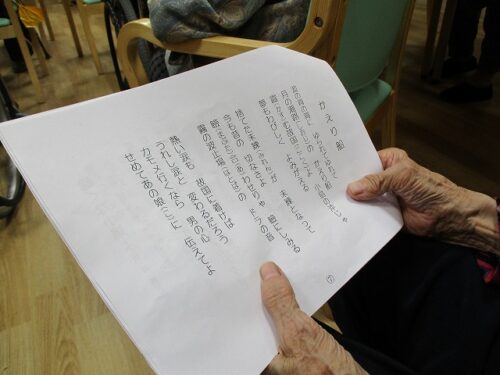 かえり船
波の背の背に ゆられてゆれて
月の潮路(しおじ)の かえり船
霞む故国よ 小島の沖じゃ
夢もわびしく よみがえる
捨てた未練が 未練となって
今も昔の 切なさよ
瞼(まぶた)合わせりゃ 瞼ににじむ
霧の波止場(はとば)の どらの音
熱い涙も 故国に着けば
うれし涙と 変わるだろう
カモメ行くなら 男の心
せめてあの娘(こ)に 伝えてよ